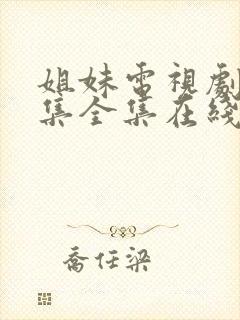 姐妹電視劇
集全集在綫
喬任梁